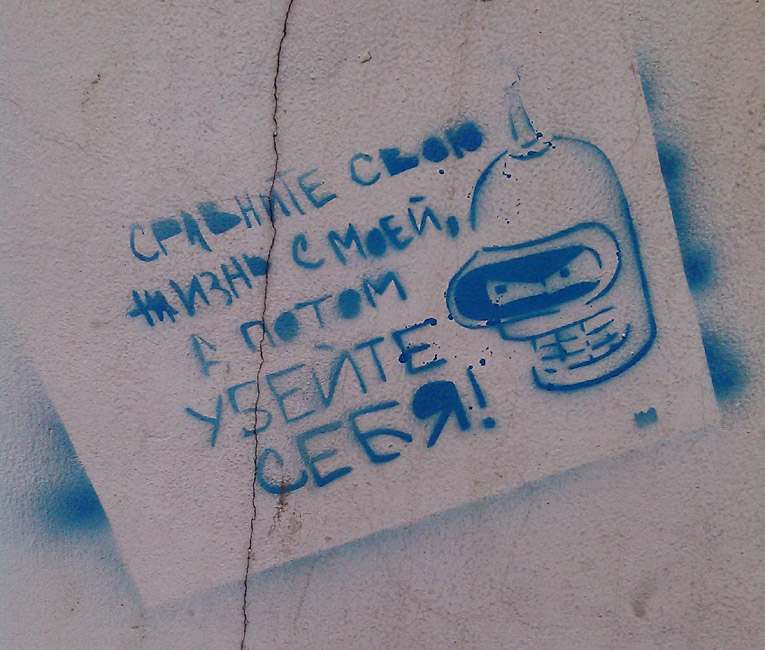 СРАВНИТЕ СВОЮ
ЖИЗНЬ С МОЕЙ,
А ПОТОМ
УБЕЙТЕ
СЕБЯ!